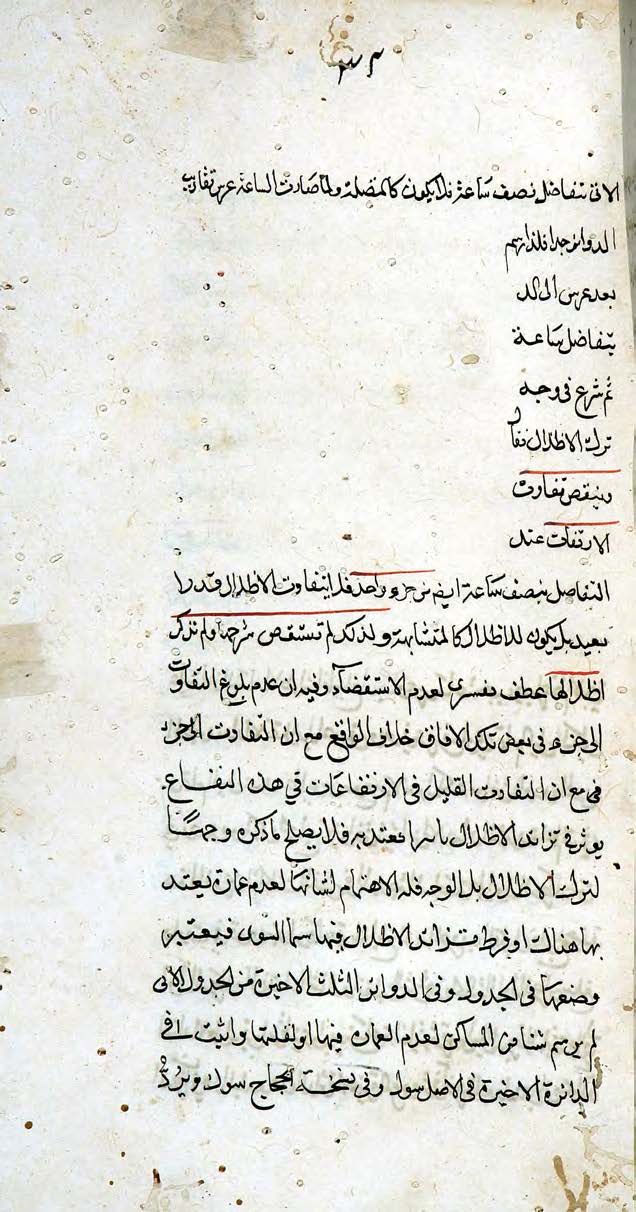 ٣٢
الاتى بتفاضل نصف ساعة فلا يكون كالمنضلة ولما صارت الساعة عرس تقارب
الدوائر جدا فلذا رسم
بعد عرس الى لد
بتفاضل ساعة
ثم شرع فى وجه
ترك الاظلال
وينقص تفاوت
الارتفات عند
التفاضل بنصف ساعة ايض من جزو واحد فلا يتفاوت الاظلال قدرا
بعيد بل يكون للاظلال كالمتشابهة ولذلك لم تستقص شرحها ولم تذكر
اظلالها عطف تفسرى لعدم الاستقضآء وفيه ان عدم بلوغ التفاوت
الى جزء فى بعض تلك الافاق خلاف الواقع مع ان التفاوت الى جزء
فى مع ان التفاوت القليل فى الارتفاعات فى هذه
يوثر فى تزائد الاظلال يعتد به فلا يصلح ما ذكره وجها
لترك الاظلال بل الوجه قلة الاهتمام لشانها لعدم عمارة يعتد
بها هناك او فرط تزائد الاظلال فيها سيما السول فيعتبر
وضعها فى الجدول وفى الدوائر الثلث الاخيرة من الجدول الاتى
لم يرسم شئا من المساكن لعدم العماره فيها او لقلتها واثبت فى
الدائرة الاخيرة فى الاصل سول وفى نسخة الحجاج سوك ويرد